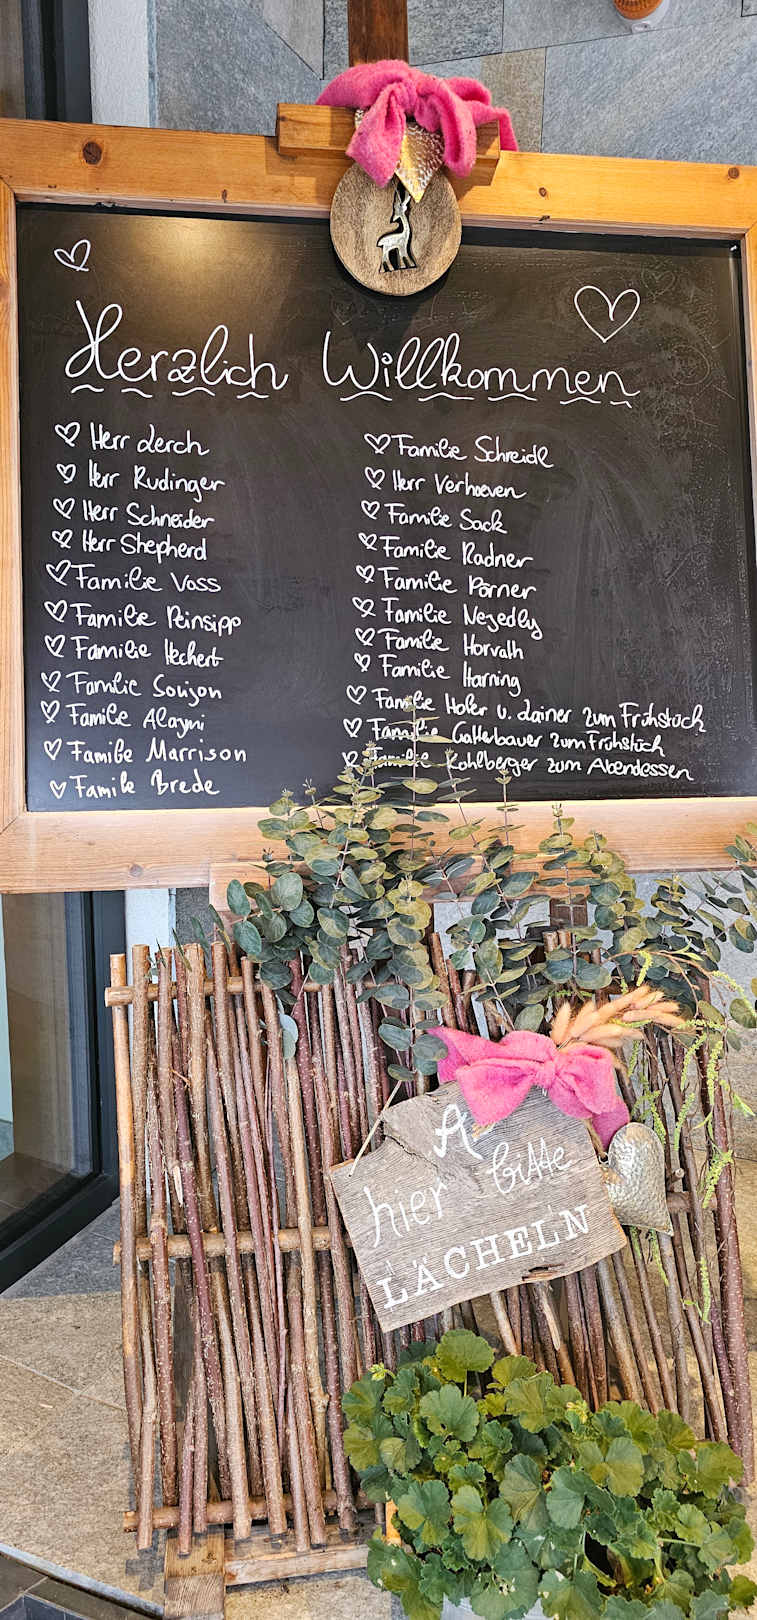 Herzlich Willkommen
Herr Lerch
Herr Rudinger
Herr Schneider
Herr Shepherd
Familie Voss
Familie Peinsipp
Familie Hechert
Familie
Familie Alayni
Familie Marrison
Familie Brede
Familie Schreidl
Herr Verhoeven
Familie Sack
Familie Radner
Familie Porner
Familie Nezedly
Familie Horvath
Familie Harring
Familie Hofer u. Lainer zum Frühstück
Familie Gatterbauer zum Frühstück
Familie Kohlberger zum Abendessen
bitte
hier
LÄCHELN